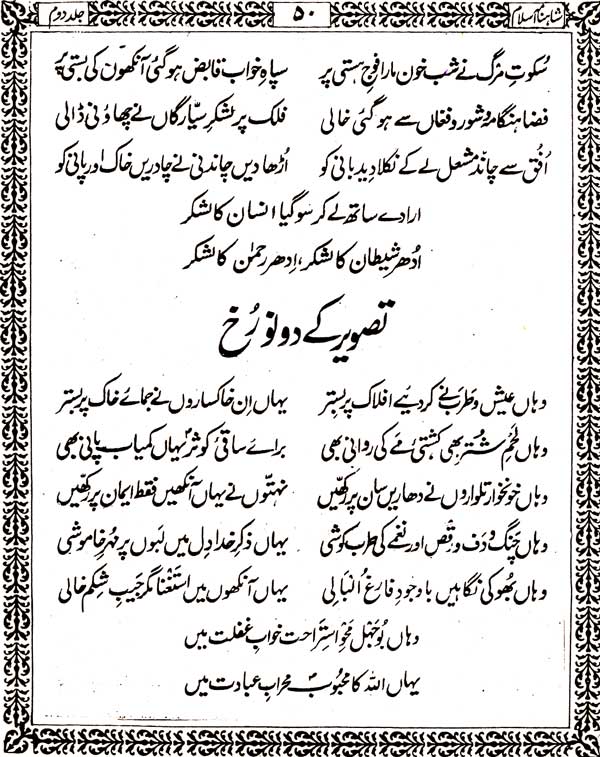 شاہنامۂ اسلام ۵۰ جلد دوم
سُکوتِ مرگ نے شب خون مارا فوجِ ہستی پر سپاہِ خواب قابض ہو گئی آنکھوں کی بستی پر
فضا ہنگامۂ شور و فغاں سے ہو گئی خالی فلک پر لشکرِ سیّارگاں نے چھاؤنی ڈالی
اُفق سے چاند مشعل لے کے نکلا دید بانی کو اُڑھا دیں چاندنی نے چادریں خاک اور پانی کو
ارادے ساتھ لے کر سو گیا انسان کا لشکر
اُدھر شیطان کا لشکر، اِدھر رحمٰن کا لشکر
تصویر کے دونو رُخ
وہاں عیش و طرب نے کر دیے افلاک پر بستر یہاں اِن خاکساروں نے جمائے خاک پر بستر
وہاں لحمِ شُتر بھی کشتیِ مے کی روانی بھی برائے ساقیِ کوثرؐ یہاں کمیاب پانی بھی
وہاں خونخوار تلواروں نے دھاریں سان پر رکھیں نہتّوں نے یہاں آنکھیں فقط ایمان پر رکھیں
وہاں چنگ و دف و رقص اور نغمے کی طرب کوشی یہاں ذکرِ خدا دِل میں لبوں پر مُہرِ خاموشی
وہاں بھوکی نگاہیں باوجودِ فارغ اُلبالی یہاں آنکھوں میں استغنا مگر جیبِ شکم خالی
وہاں بُوجہل محوِ استراحت خوابِ غفلت میں
یہاں اللہ کا محبوبؐ محرابِ عبادت میں